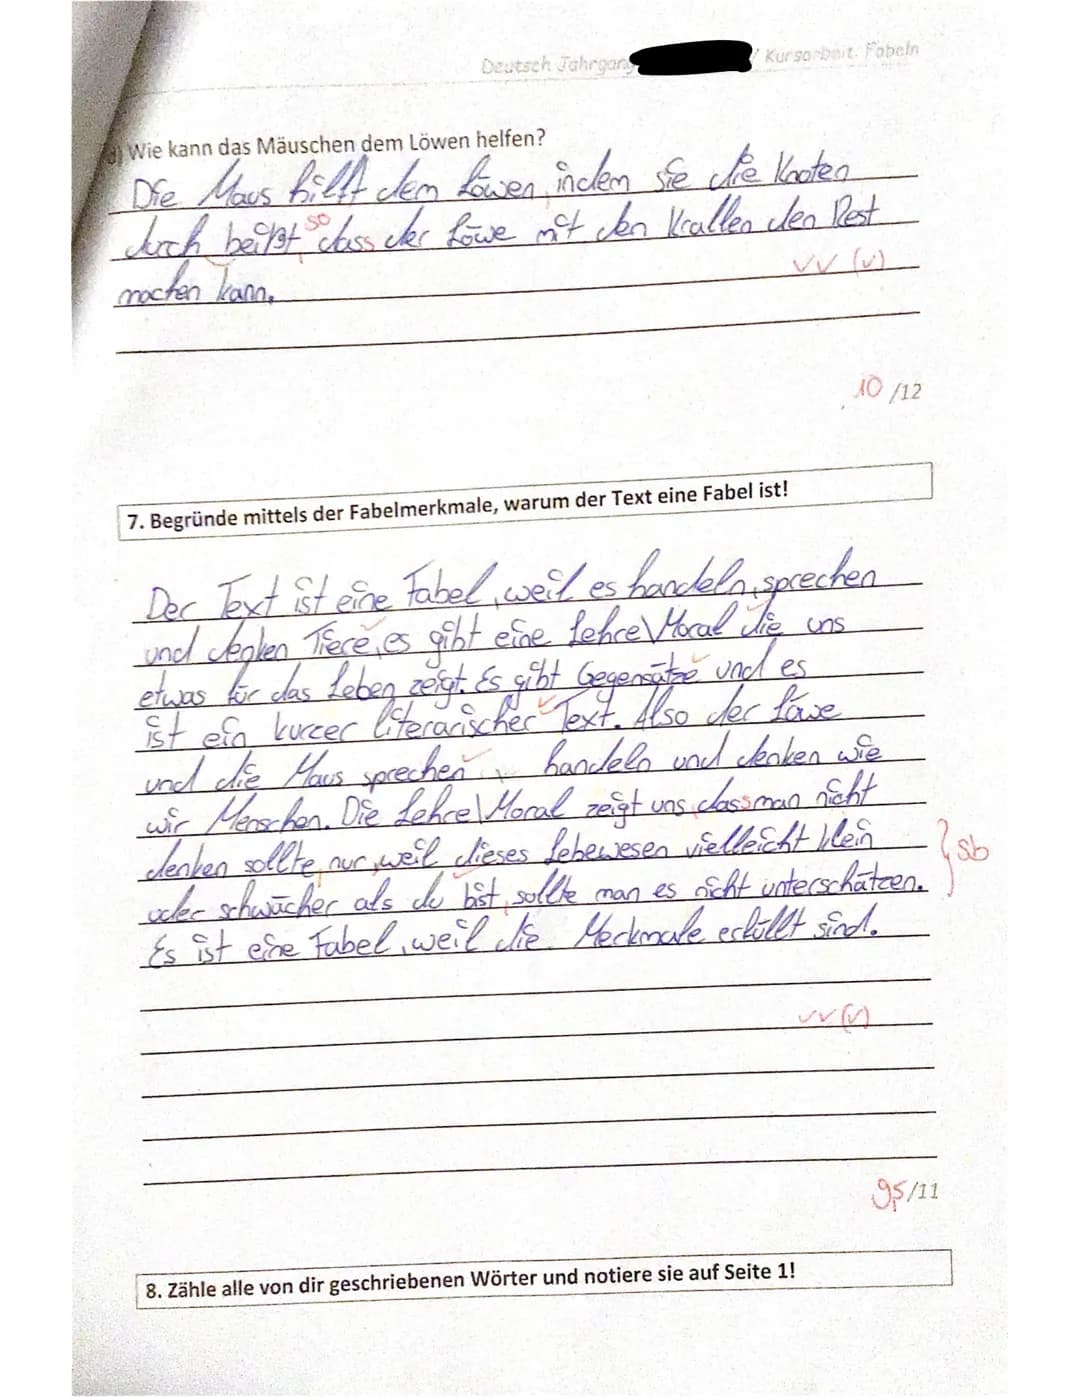 Deutsch Jahrgang / Kursarbeit: Fabeln
d) Wie kann das Mäuschen dem Löwen helfen?
Die Maus hilft dem Löwen, indem sie die Knoten
so
durch beißt, dass der Löwe mit den Krallen den Rest
machen kann.
✓✓ (✓)
10 /12
7. Begründe mittels der Fabelmerkmale, warum der Text eine Fabel ist!
Der Text ist eine Fabel, weil es handeln, sprechen
und denken Tiere, es gibt eine Lehre\Moral die uns
etwas für das Leben zeigt. Es gibt Gegensätze und es
ist ein kurcer literarischer Text. Also der Löwe
und die Maus sprechen, handeln und denken wie
wir Menschen. Die Lehre\Moral zeigt uns, dass man nicht
denken sollte, nur, weil dieses Lebewesen vielleicht klein
oder schwächer als du bist, sollte man es nicht unterschätzen.
Sb
Es ist eine Fabel, weil die Merkmale erfüllt sind.
✓✓(✓)
9,5/11
8. Zähle alle von dir geschriebenen Wörter und notiere sie auf Seite 1!